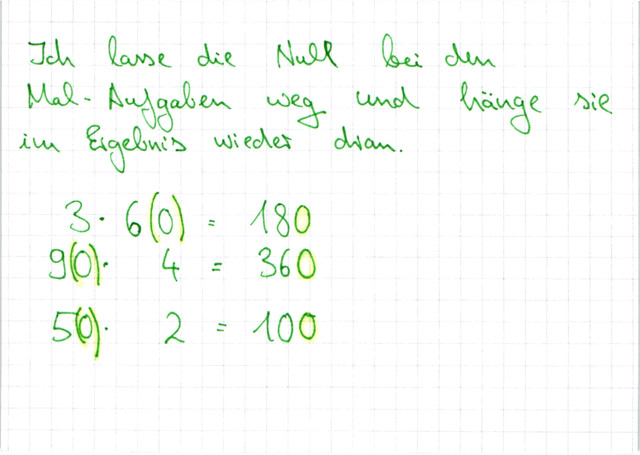 Ich lasse die Null bei den
Mal-Aufgaben weg und hänge sie
im Ergebnis wieder dran.
3 · 6(0) = 180
9(0) · 4 = 360
5(0) · 2 = 100